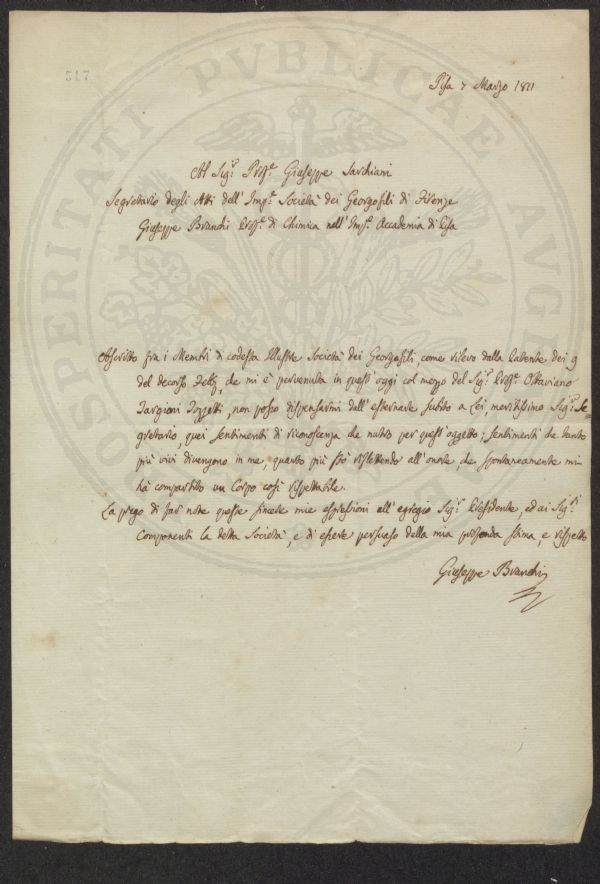 517
Pisa 7 Marzo 1811
Al Sig.r Prof.e Giuseppe Sarchiani
Segretario degli Atti dell' Imp.e Società dei Georgofili di Firenze
Giuseppe Branchi Prof.e di Chimica nell' Imp.e Accademia di Pisa
Ascritto fra i Membri di codesta Illustre Società dei Georgofili, come rilevo dalla Patente dei 9
del decorso Febb.o, che mi è pervenuta in quest' oggi col mezzo del Sig.r Prof.e Ottaviano
Targioni Tozzetti, non posso dispensarmi dall' esternare subito a Lei, meritissimo Sig.r Se=
gretario, quei sentimenti di riconoscenza che nutro per quest' oggetto; sentimenti che tanto
più vivi divengono in me, quanto più stò riflettendo all' onore, che spontaneamente mi
hà compartito un Corpo così rispettabile.
La prego di far note queste sincere mie espressioni all' egregio Sig.r Presidente, ed ai Sig.ri
Componenti la detta Società, e di essere persuaso della mia profonda stima, e rispetto
Giuseppe Branchi
PROSPERITATI PVBLICAE AVGENDAE